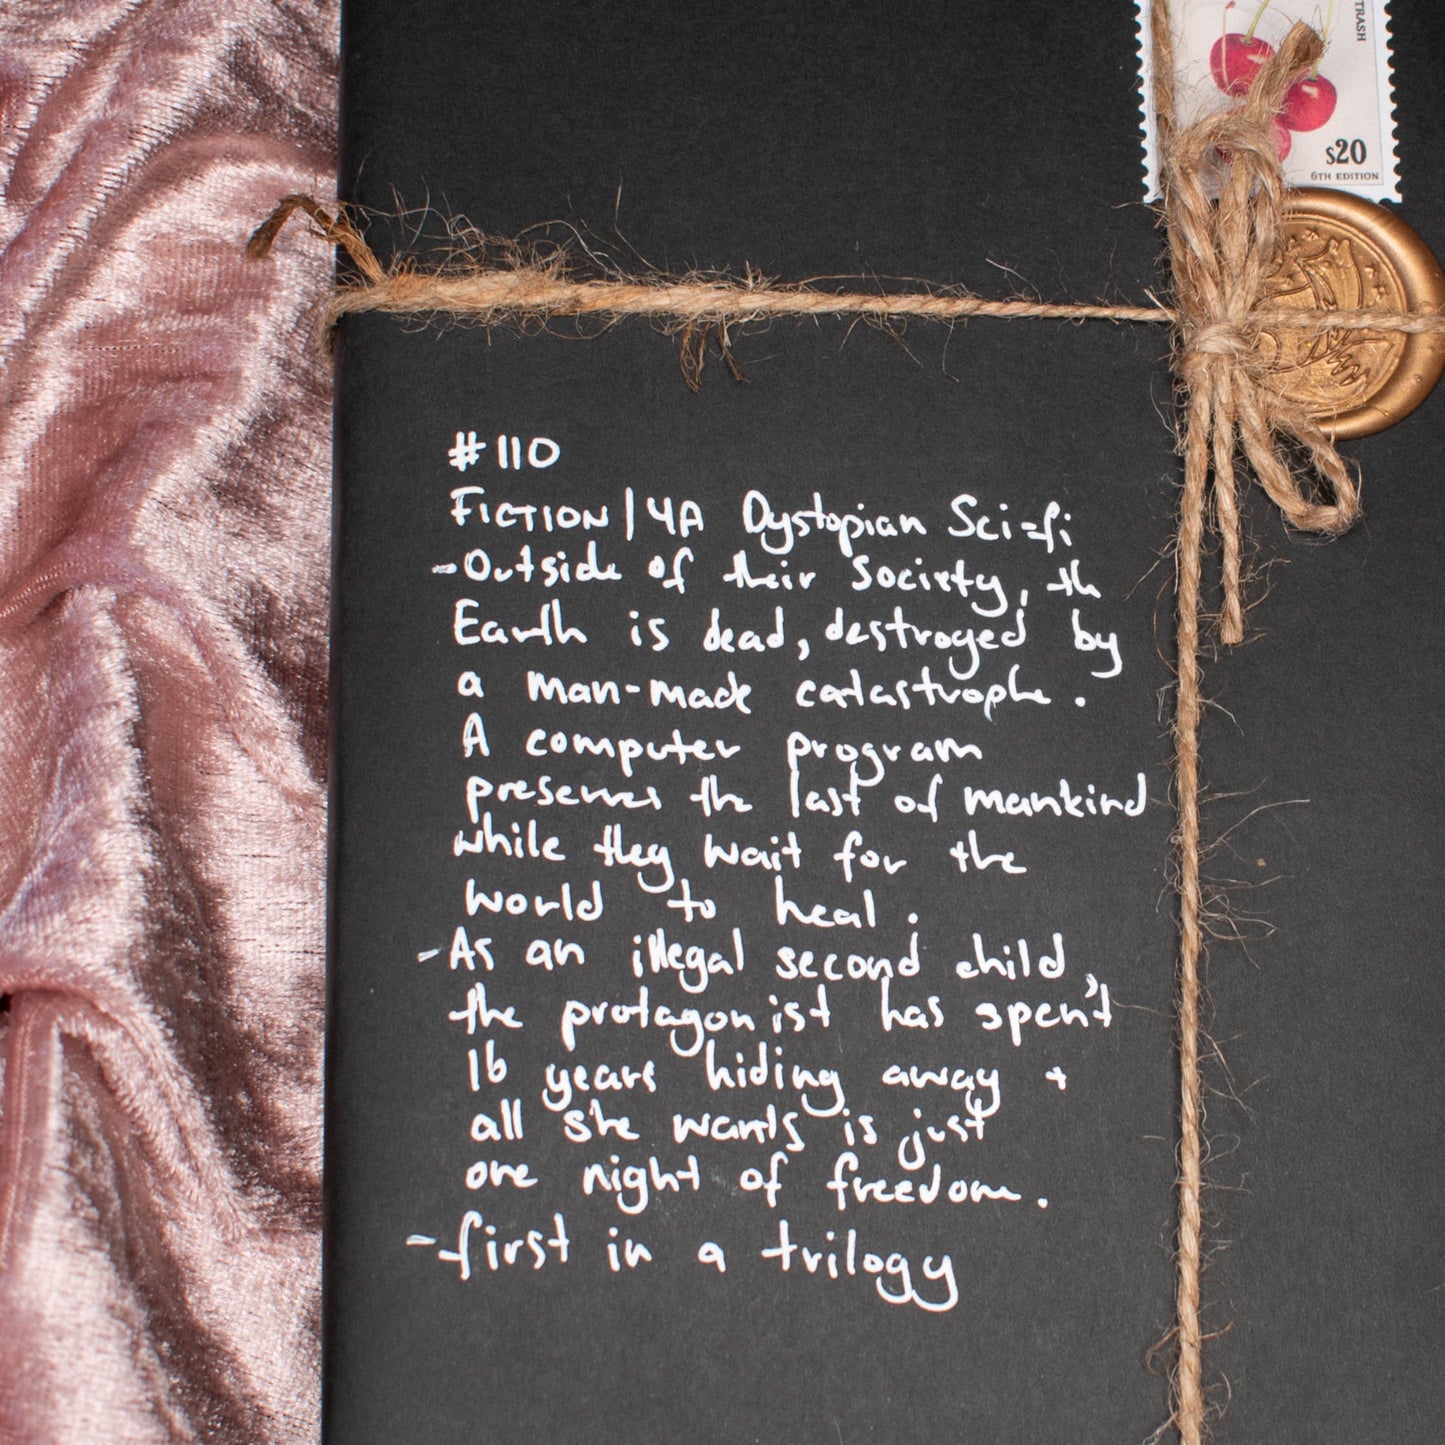 TRASH
$20
6TH EDITION
#110
FICTION/YA Dystopian Sci-fi
-Outside of their society, the
Earth is dead, destroyed by
a man-made catastrophe.
A computer program
preserves the last of mankind
while they wait for the
world to heal.
-As an illegal second child,
the protagonist has spent
16 years hiding away +
all she wants is just
one night of freedom.
-first in a trilogy